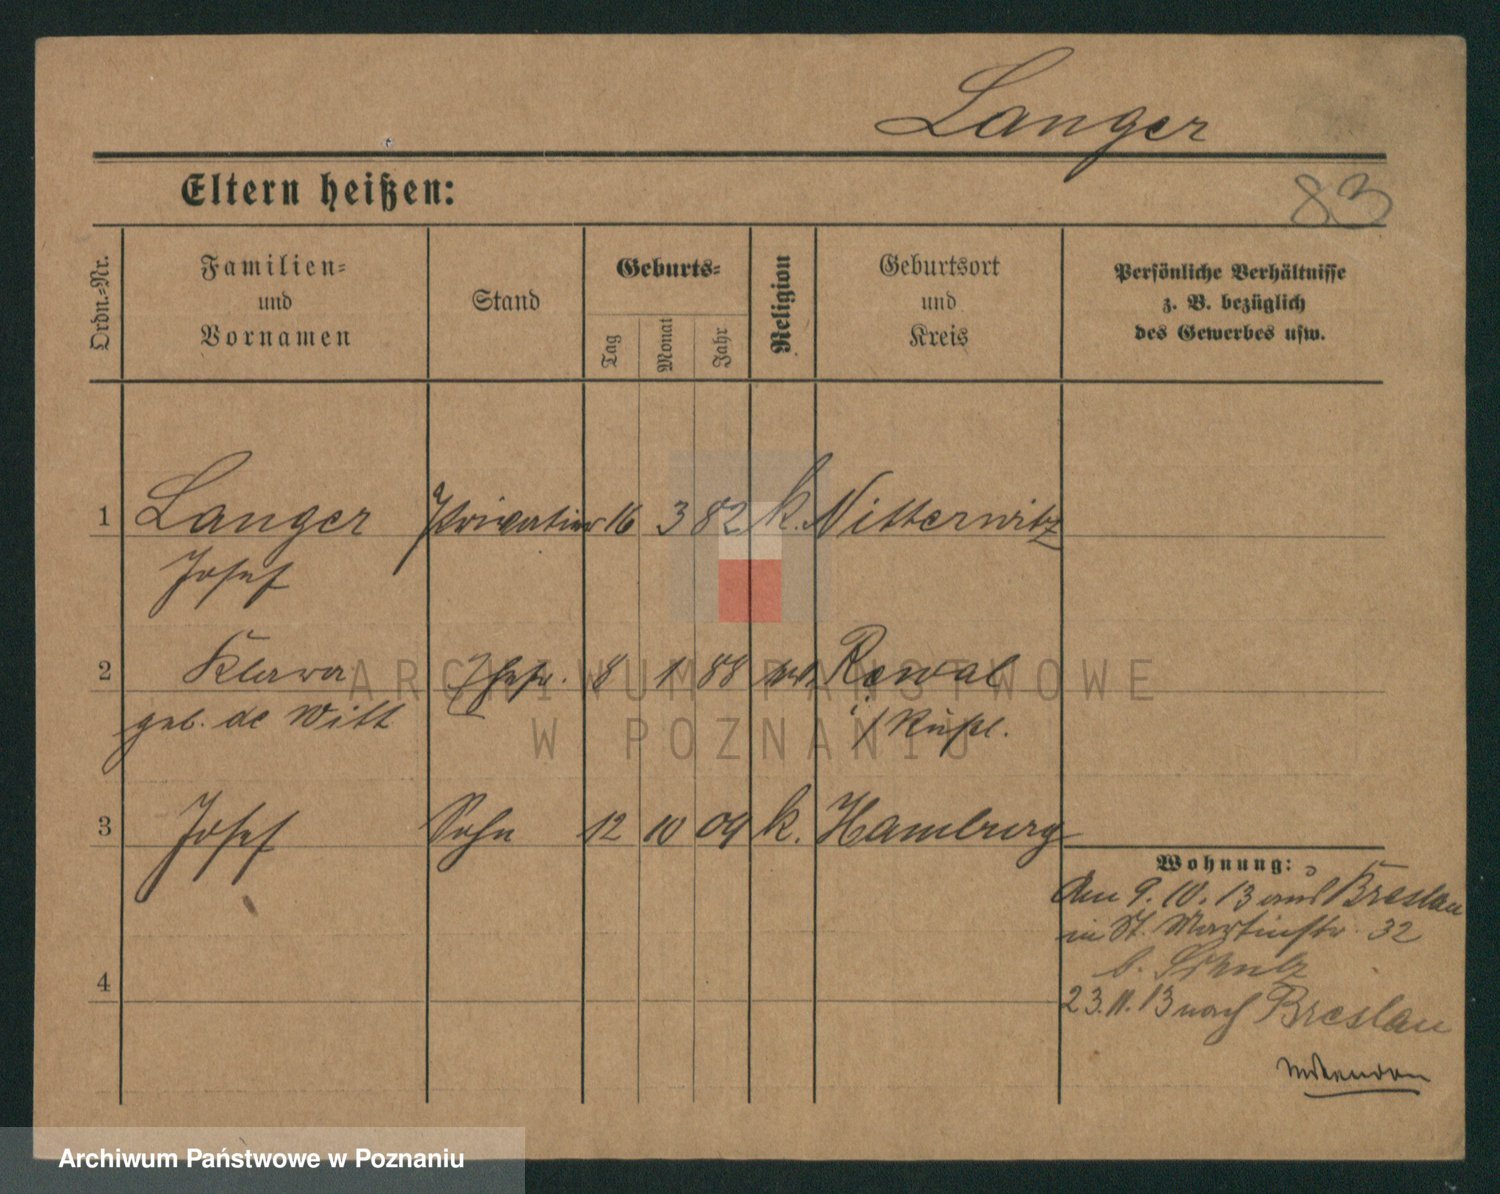 Langer
Eltern heißen:
83
Ordn.-Nr.
Familien-
und
Vornamen
Stand
Geburts-
Tag
Monat
Jahr
Religion
Geburtsort
und
Kreis
Persönliche Verhältnisse
z. B. bezüglich
des Gewerbes usw.
1 Langer Privatier 16 3 82 k. Nitterwitz
Josef
2 Klara Ehefr. 8 1 88 Rewal
geb. de Witt i/Rußl.
3 Josef Sohn 12 10 09 k. Hamburg
Wohnung:
Am 9.10.13 aus Breslau
in St. Martinstr. 32
b. Schulz
4
23.11.13 nach Breslau
ARCHIWUM PAŃSTWOWE
W POZNANIU
Archiwum Państwowe w Poznaniu